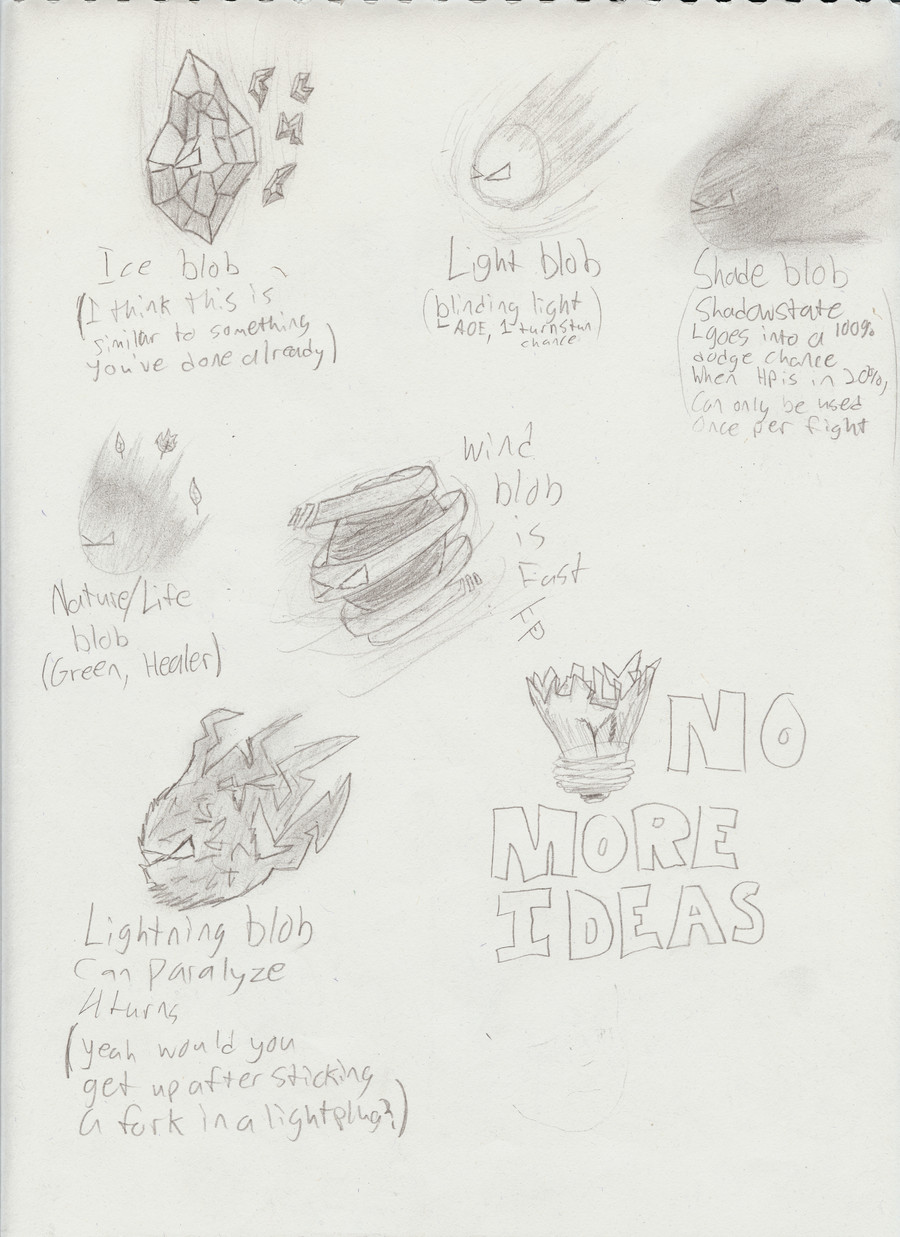 Ice blob
(I think this is
similar to something
you've done already)
Light blob
(blinding light
AOE, 1 turn stun
chance)
Shade blob
(Shadowstate
goes into a 100%
dodge chance
When HP is in 20%,
Can only be used
Once per fight
Nature/Life
blob
(Green, Healer)
wind
blob
is
Fast
NO
MORE
IDEAS
Lightning blob
Can Paralyze
4 turns
(yeah would you
get up after sticking
a fork in a lightplug?)